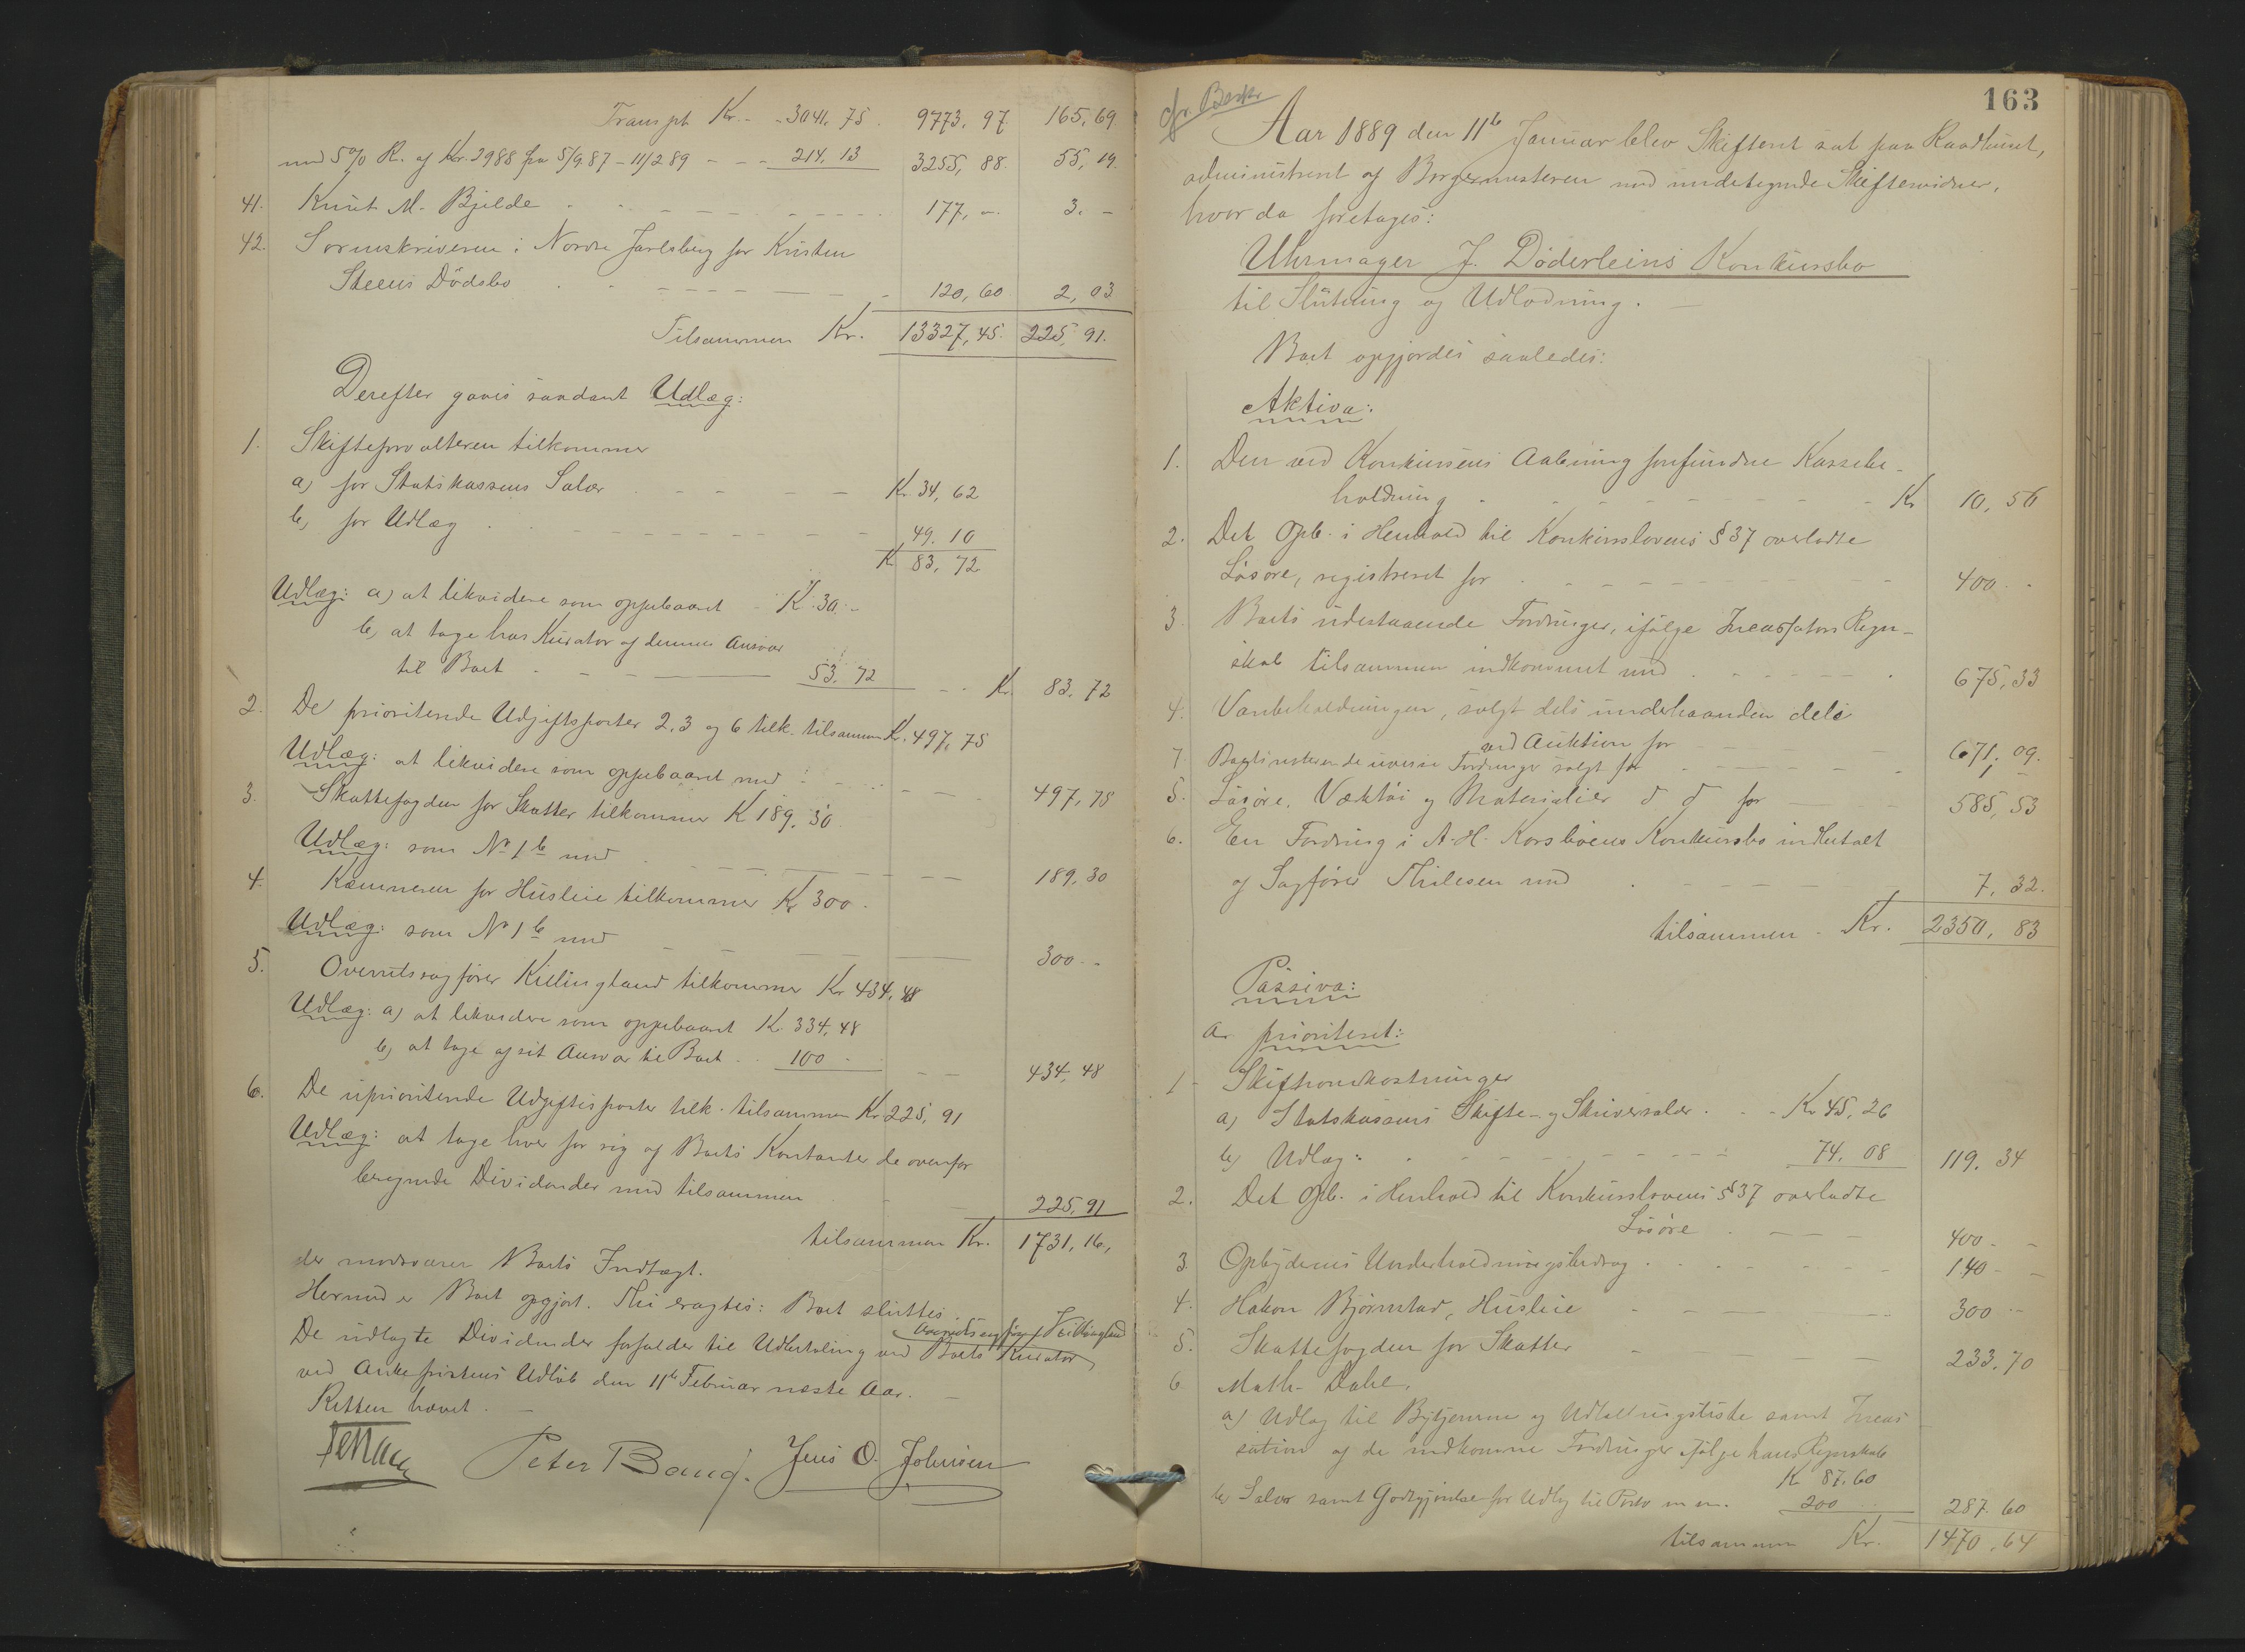 Transpt Kr. - - 3041, 75. 9773, 97 165, 69
med 5% R. af Kr. 2988 fra 5/9. 87 - 11/2 89 - - - 214, 13 3255, 88. 55, 19.
41. Knut M. Bjelde 177, -. 3. -
42. Sorenskriveren i Nordre Jarlsberg for Kristen
Steens Dödsbo 120, 60 2, 03
Tilsammen Kr. 13327, 45. 225, 91.
Derefter gaves saadant Udlæg:
1. Skifteforvalteren tilkommer
a) for Statskassens Salær Kr. 34, 62
b) for Udlæg 49. 10
K 83, 72
Udlæg: a) at likvidere som oppebaaret - K. 30. -
b) at tage hos Kurator af dennes Ansvar
til Boet 53. 72 - - Kr. 83. 72
2. De prioriterede Udgiftsposter 2, 3 og 6 tilk. tilsammen Kr. 497, 75
Udlæg: at likvidere som oppebaaret med 497, 75
3. Skattefogden for Skatter tilkommer K 189, 30.
Udlæg: som No 1 b med 189, 30
4. Kæmneren for Husleie tilkommer Kr 300.
Udlæg: som No 1 b med 300. -
5. Overretssagfører Kiellingland tilkommer Kr 434, 48
Udlæg: a) at likvidere som oppebaaret K. 334, 48
b) at tage af sit Ansvar til Boet - 100 - 434, 48
6. De uprioriterede Udgiftsposter tilk. tilsammen Kr 225, 91
Udlæg: at tage hver for sig af Boets Kontanter de ovenfor
beregnede Dividender med tilsammen 225, 91
tilsammen Kr. 1731, 16,
der modsvarer Boets Indtægt.
Hermed er Boet opgjort. Thi eragtes: Boet sluttes.
Overretssagfører Kiellingland
De udlagte Dividender forfalder til Udbetaling ved Boets Kurator
ved Ankefristens Udløb den 11te Februar næste Aar.
Retten hævet. -
Peter Bang. Jens O. Johnsen
163
cfr. Bortr
Aar 1889 den 11te Januar blev Skifteret sat paa Raadhuset,
administreret af Borgermesteren med undertegnede Skiftevidner,
hvor da foretages:
Uhrmager J. Döderleins Konkursbo
til Slutning og Udlodning. -
Boet opgjordes saaledes:
Aktiva:
1. Den ved Konkursens Aabning forefundne Kassebe-
holdning - Kr 10, 56
2. Det Opb. i Henhold til Konkurslovens § 37 overladte
Løsøre, registreret for 400 - -
3. Boets udestaaende Fordringer, ifølge Incassators Regn-
skab tilsammen indkommet med 675, 33
4. Varebeholdningen, solgt dels underhaanden dels
ved Auktion for 671, 09.
7 Boets resterende uvisse Fordringer solgt for 1, -
5. Løsøre, Værktøi og Materialier d d for 585, 53
6. En Fordring i A. H. Korsbøens Konkursbo indbetalt
af Sagfører Thilesen med 7, 32.
tilsammen - Kr. 2350, 83
Passiva:
a. prioriteret:
1 - Skifteomkostninger
a) Statskassens Skifte- og Skriversalær - Kr 45, 26
b) Udlæg: 74. 08 119. 34
2. Det Opb. i Henhold til Konkurslovens § 37 overladte
Løsøre 400 - -
3. Opbyderens Underholdningsbidrag 140 - -
4. Hakon Bjørnstad, Husleie 300 - -
5. Skattefogden for Skatter 233. 70
6 Math. Dahl,
a) Udlæg til Bytjenerne og Udtællingsliste samt Incas
sation af de indkomne Fordringer ifølge hans Regnskab
K 87. 60
b) Salær samt Godtgjørelse for Udlæg til Porto m m. 200 287. 60
tilsammen Kr. 1470, 64